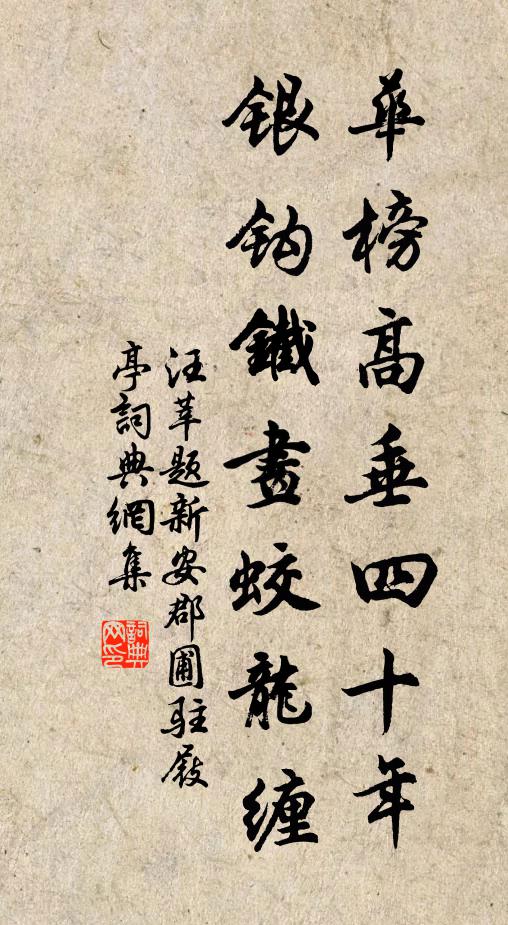 華榜高垂四十年
銀鈎鐵畫蛟龍纏
汪莘題新安郡圃駐屐
亭詞典網集
詞典
网印